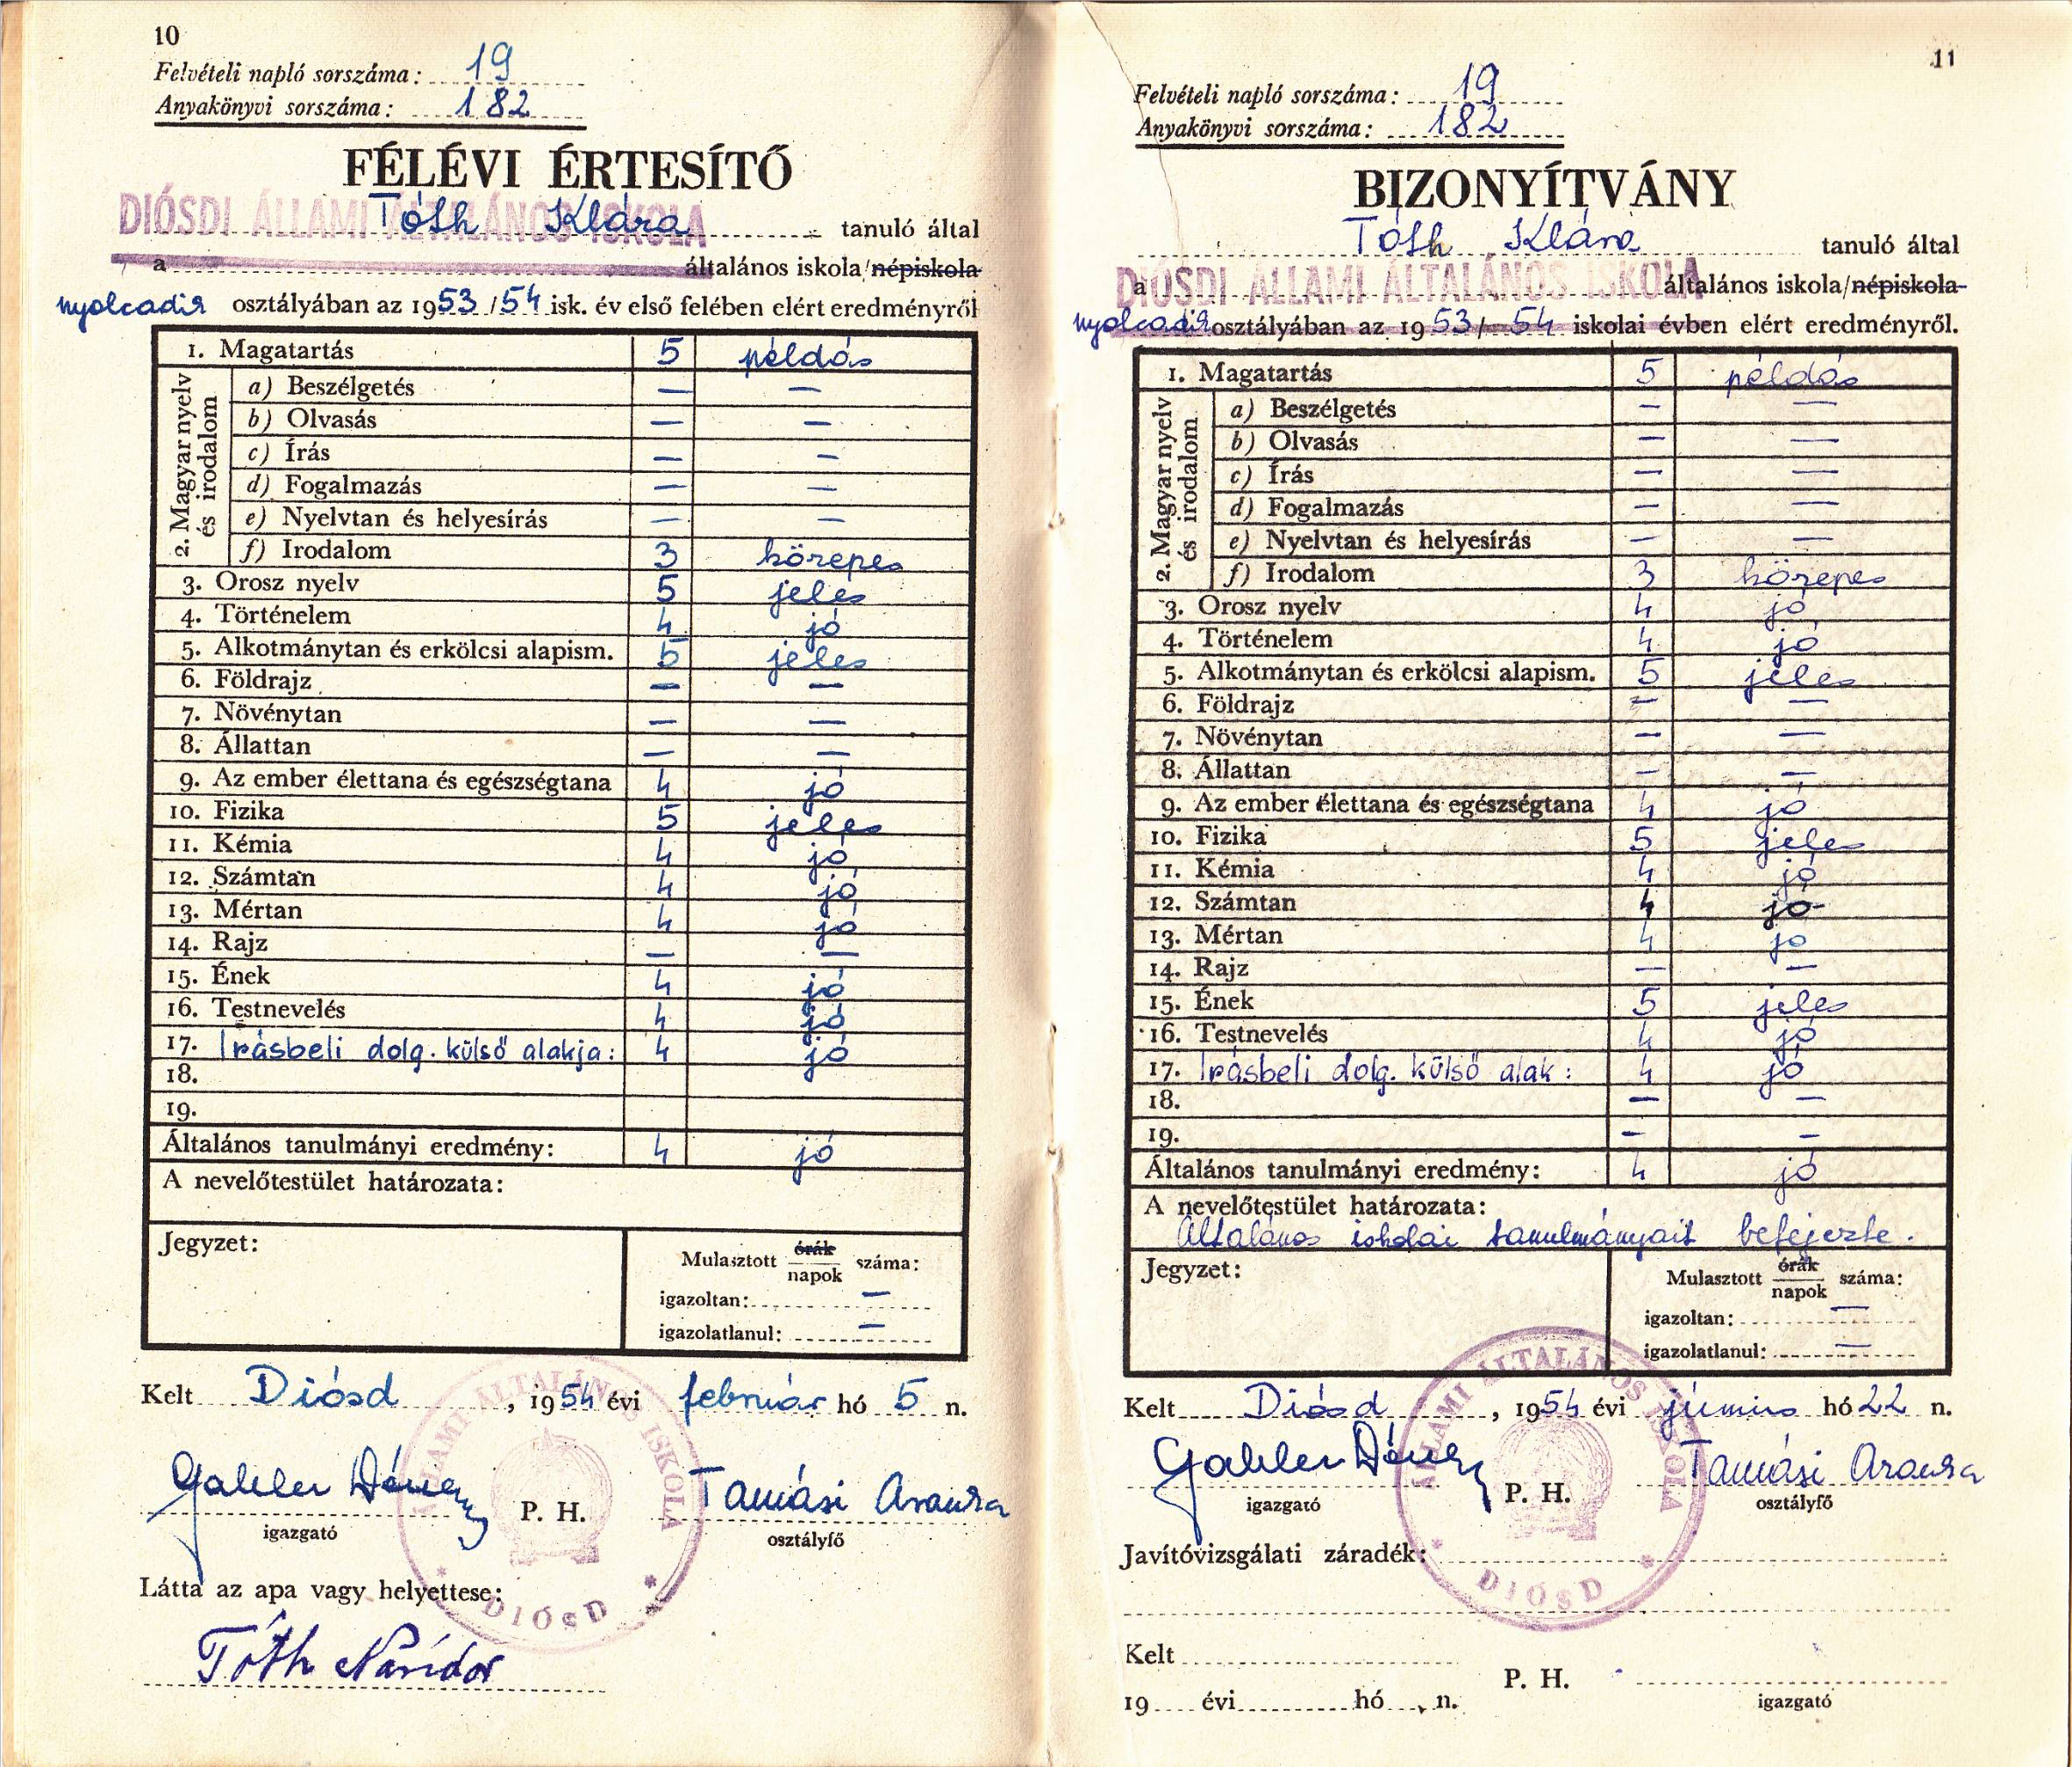 10
Felvételi napló sorszáma: 19
Anyakönyvi sorszáma: 182
FÉLÉVI ÉRTESÍTŐ
DIÓSDI ÁLLAMI ÁLTALÁNOS ISKOLA
Tóth Klára tanuló által
a általános iskola/népiskola
nyolcadik osztályában az 1953/54 isk. év első felében elért eredményről
1. Magatartás 5 példás
2. Magyar nyelv és irodalom
a) Beszélgetés — —
b) Olvasás — —
c) Írás — —
d) Fogalmazás — —
e) Nyelvtan és helyesírás — —
f) Irodalom 3 közepes
3. Orosz nyelv 5 jeles
4. Történelem 4 jó
5. Alkotmánytan és erkölcsi alapism. 5 jeles
6. Földrajz — —
7. Növénytan — —
8. Állattan — —
9. Az ember élettana és egészségtana 4 jó
10. Fizika 5 jeles
11. Kémia 4 jó
12. Számtan 4 jó
13. Mértan 4 jó
14. Rajz — —
15. Ének 4 jó
16. Testnevelés 4 jó
17. Irásbeli dolg. külső alakja: 4 jó
18.
19.
Általános tanulmányi eredmény: 4 jó
A nevelőtestület határozata:
Jegyzet:
Mulasztott órák napok száma:
igazoltan: —
igazolatlanul: —
Kelt Diósd, 1954 évi február hó 5 n.
Gabler Dénes P. H. Tamási Aranka
igazgató osztályfő
ÁLLAMI ÁLTALÁNOS ISKOLA * DIÓSD *
Látta az apa vagy helyettese:
Tóth Nándor
11
Felvételi napló sorszáma: 19
Anyakönyvi sorszáma: 182
BIZONYÍTVÁNY
Tóth Klára tanuló által
DIÓSDI ÁLLAMI ÁLTALÁNOS ISKOLA
a általános iskola/népiskola
nyolcadik osztályában az 1953/54 iskolai évben elért eredményről.
1. Magatartás 5 példás
2. Magyar nyelv és irodalom
a) Beszélgetés — —
b) Olvasás — —
c) Írás — —
d) Fogalmazás — —
e) Nyelvtan és helyesírás — —
f) Irodalom 3 közepes
3. Orosz nyelv 4 jó
4. Történelem 4 jó
5. Alkotmánytan és erkölcsi alapism. 5 jeles
6. Földrajz — —
7. Növénytan — —
8. Állattan — —
9. Az ember élettana és egészségtana 4 jó
10. Fizika 5 jeles
11. Kémia 4 jó
12. Számtan 4 jó
13. Mértan 4 jó
14. Rajz — —
15. Ének 5 jeles
16. Testnevelés 4 jó
17. Irásbeli dolg. külső alak: 4 jó
18. — —
19. — —
Általános tanulmányi eredmény: 4 jó
A nevelőtestület határozata:
Általános iskolai tanulmányait befejezte.
Jegyzet:
Mulasztott órák napok száma:
igazoltan: —
igazolatlanul: —
Kelt Diósd, 1954 évi június hó 22 n.
Gabler Dénes P. H. Tamási Aranka
igazgató osztályfő
ÁLLAMI ÁLTALÁNOS ISKOLA * DIÓSD *
Javítóvizsgálati záradék:
Kelt
P. H.
19 évi hó n. igazgató